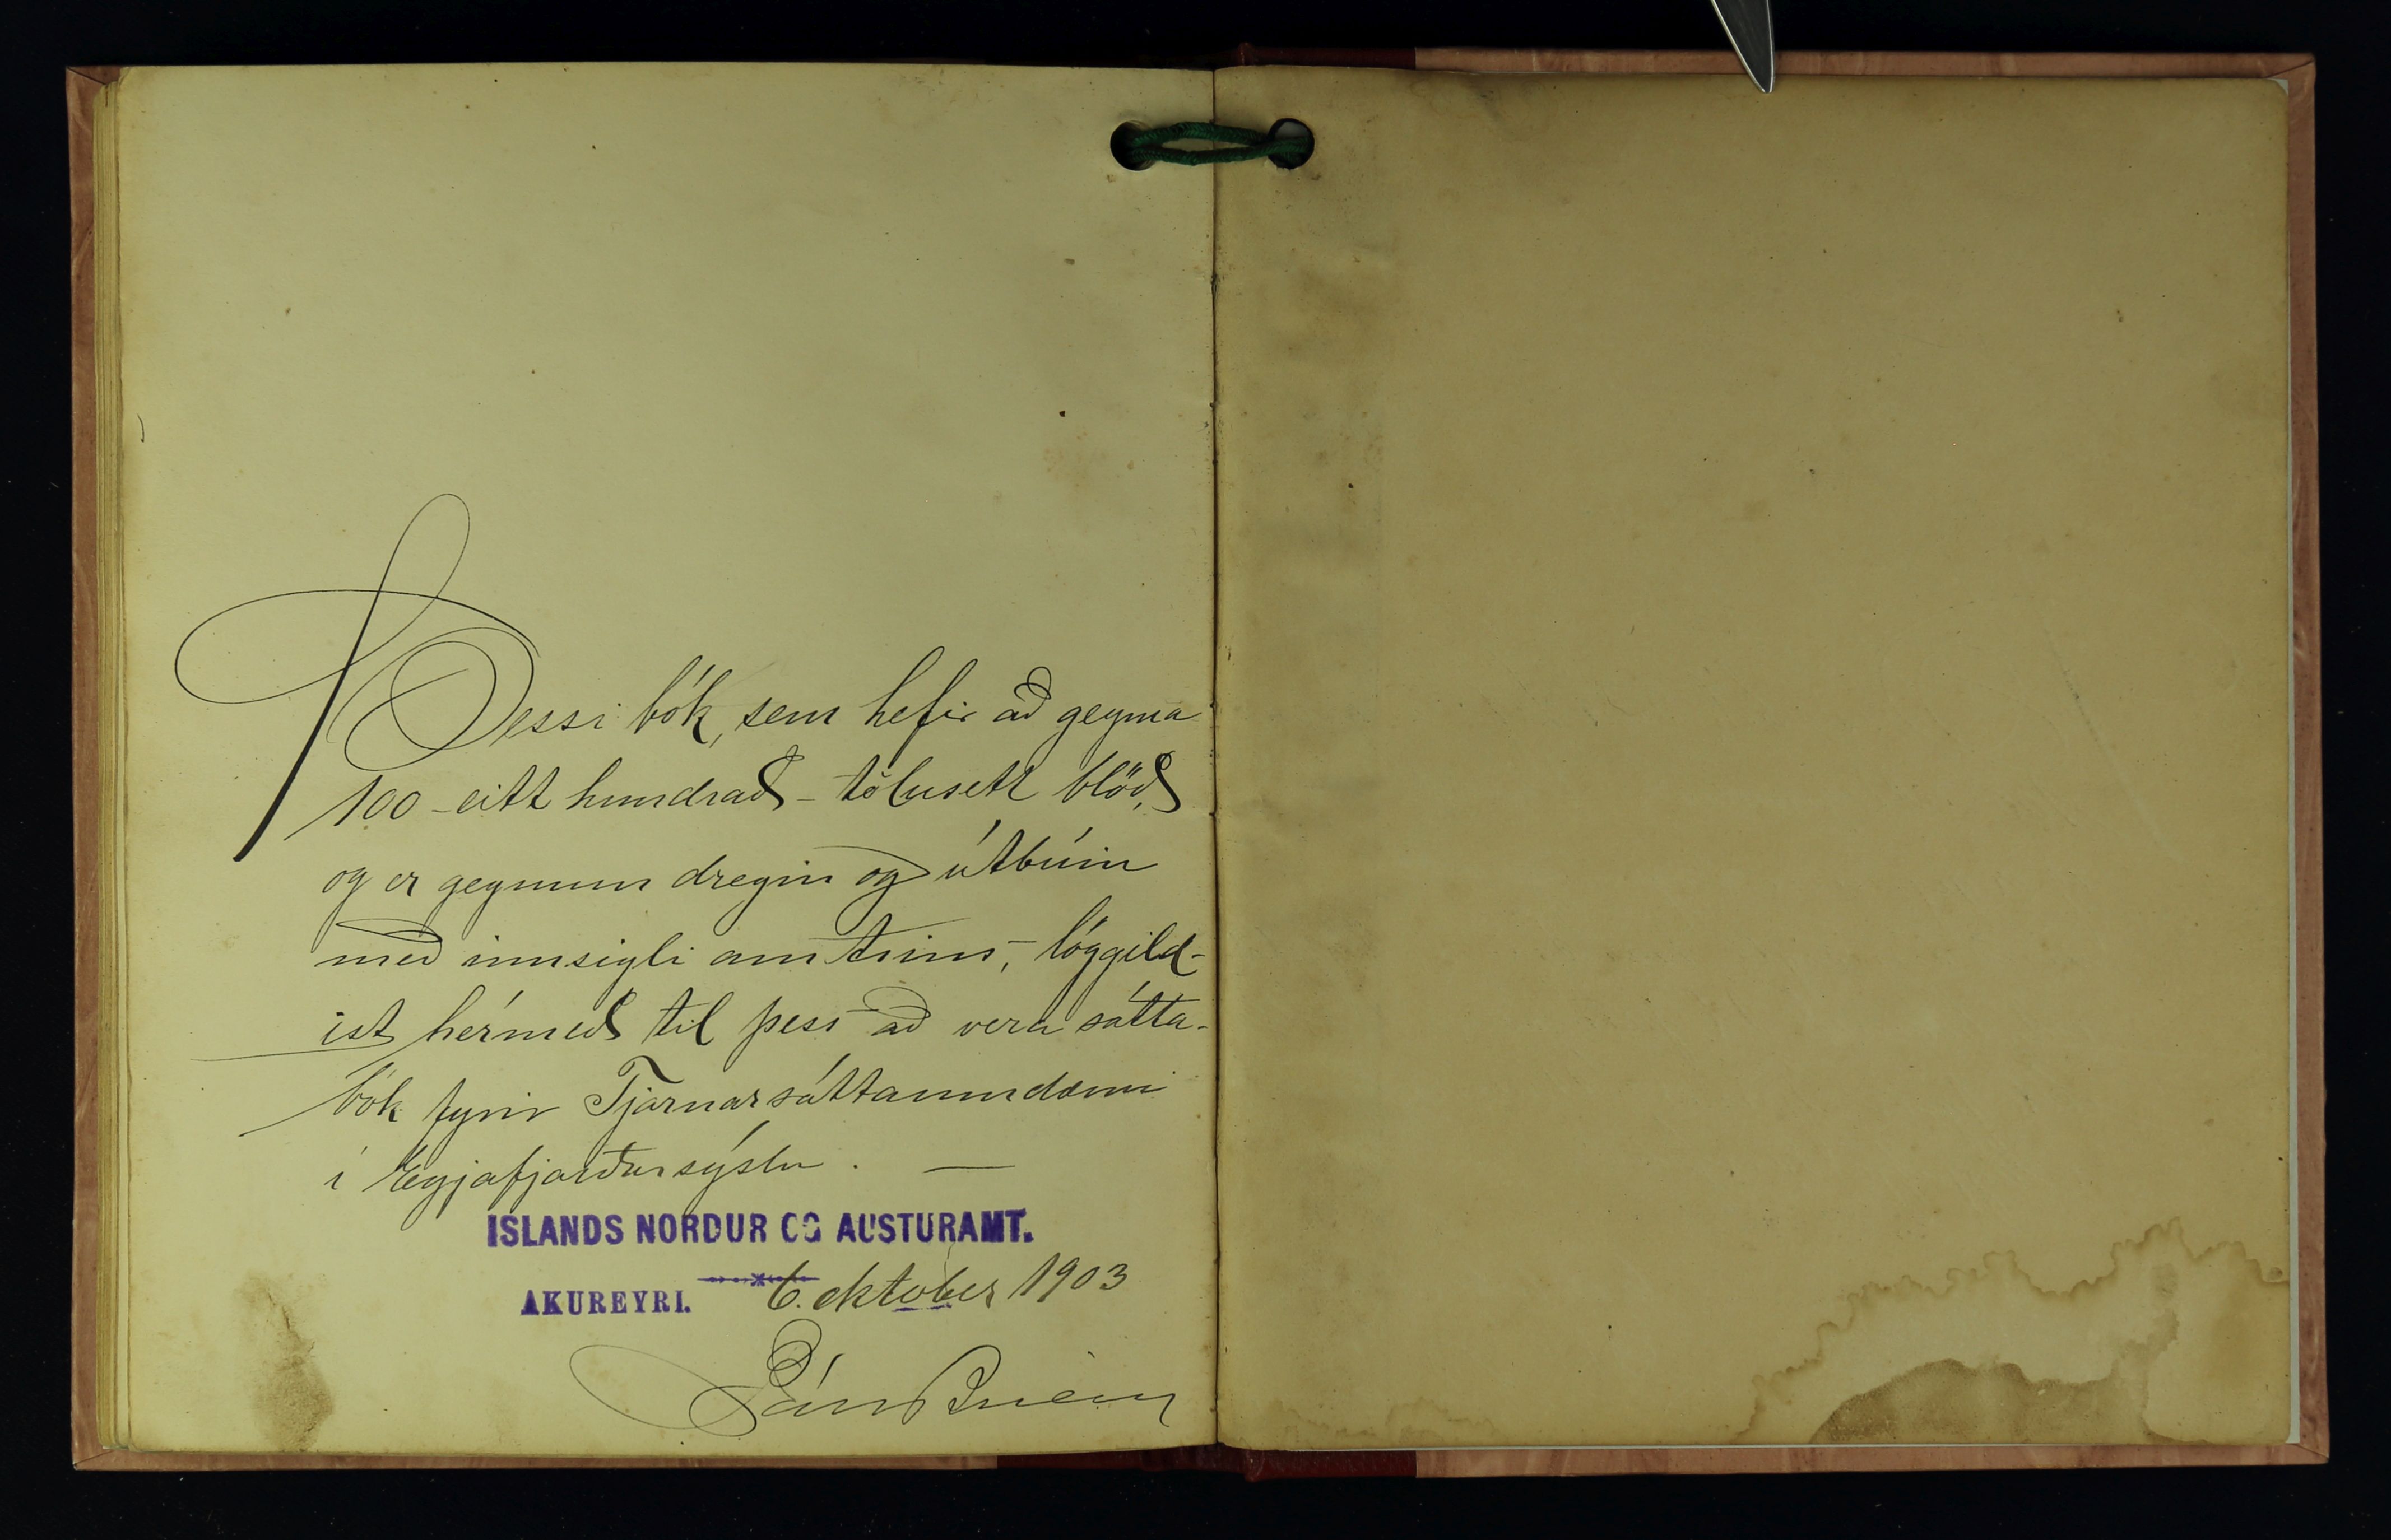 Þessi bók, sem hefir að geyma
100 - eitt hundrað - tölusett blöð,
og er gegnum dregin og útbúin
með innsigli amtsins, löggild-
ist hérmeð til þess að vera sátta-
bók fyrir Tjarnarsáttaumdæmi
í Eyjafjarðarsýslu. —
ISLANDS NORDUR OG AUSTURAMT.
AKUREYRI. 6. október 1903
Páll Briem